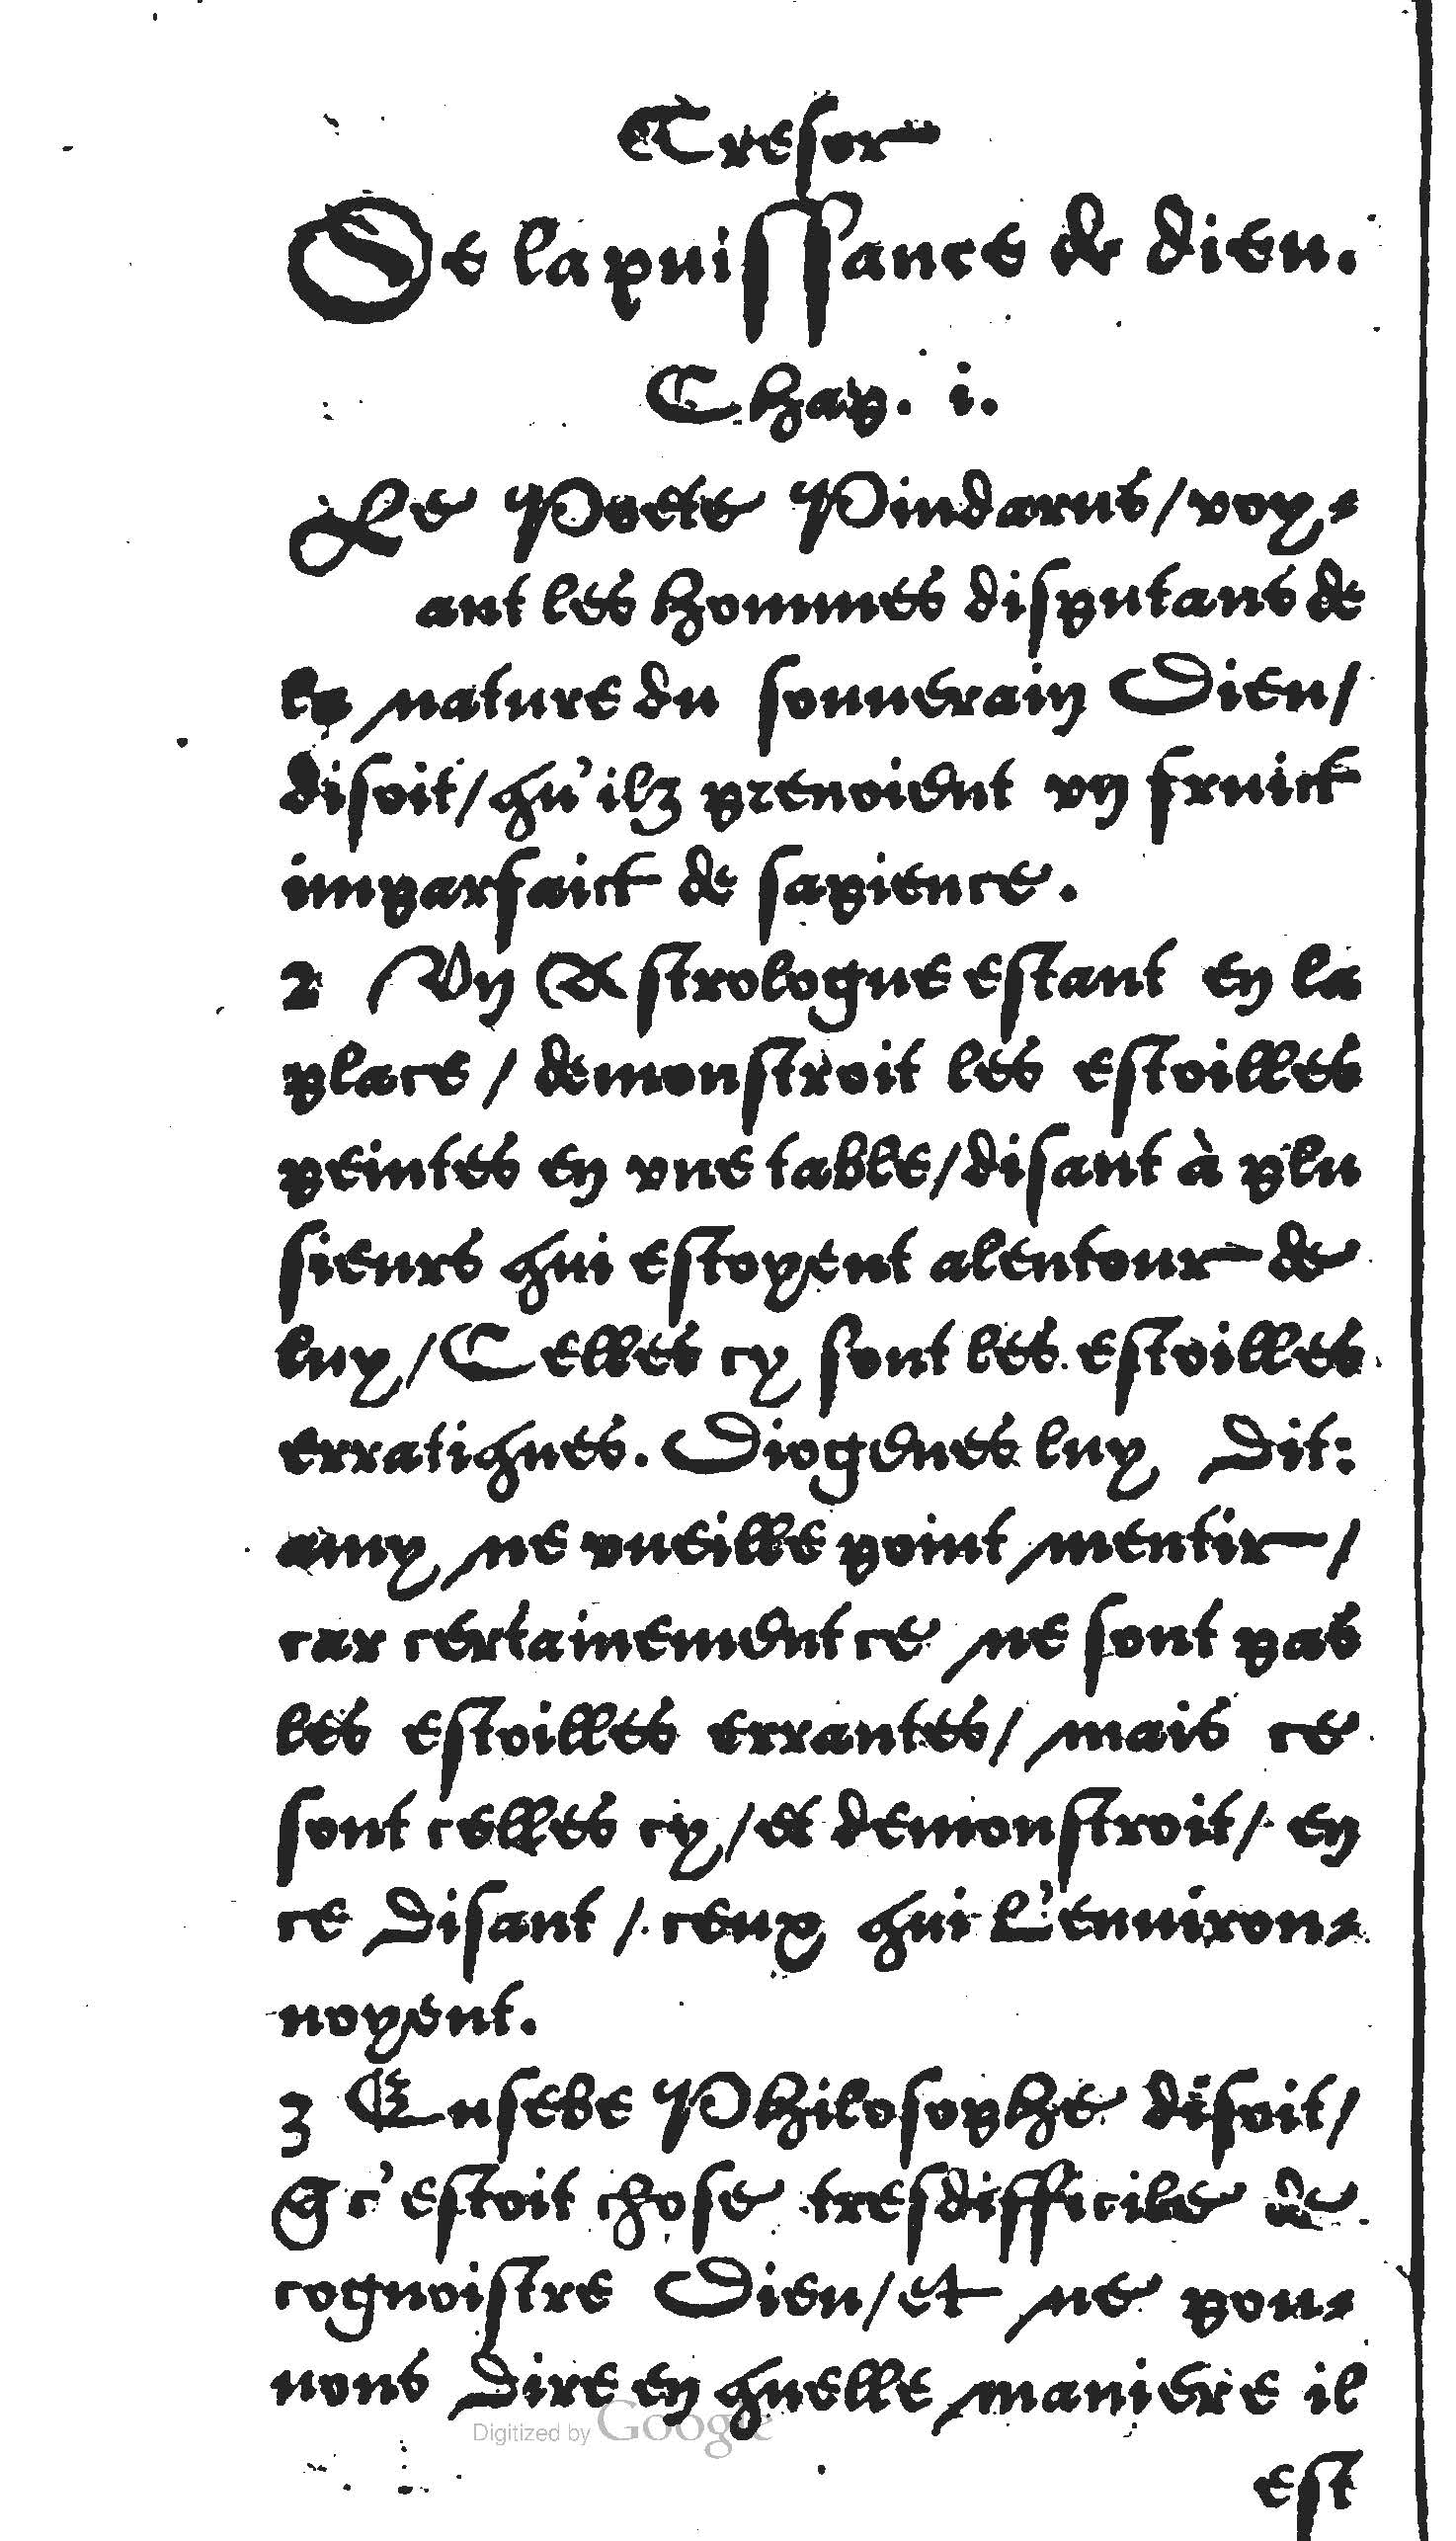 Tresor
De la puissance de dieu.
Chap. i.
Le Poete Pindarus/ voy-
ant les hommes disputans de
la nature du souuerain Dieu/
disoit/ qu'ilz prenoient vn fruict
imparfaict de sapience.
2 Vn Astrologue estant en la
place/ demonstroit les estoilles
peintes en vne table/ disant à plu
sieurs qui estoyent alentour de
luy/ Celles cy sont les estoilles
erratiques. Diogenes luy dit:
amy ne vueille point mentir/
car certainement ce ne sont pas
les estoilles errantes/ mais ce
sont celles cy/ et demonstroit/ en
ce disant/ ceux qui l'enuiron-
noyent.
3 Eusebe Philosophe disoit/
q̃ c'estoit chose tresdifficile de
cognoistre Dieu/ et ne pou-
uons dire en quelle maniere il
Digitized by Google
est